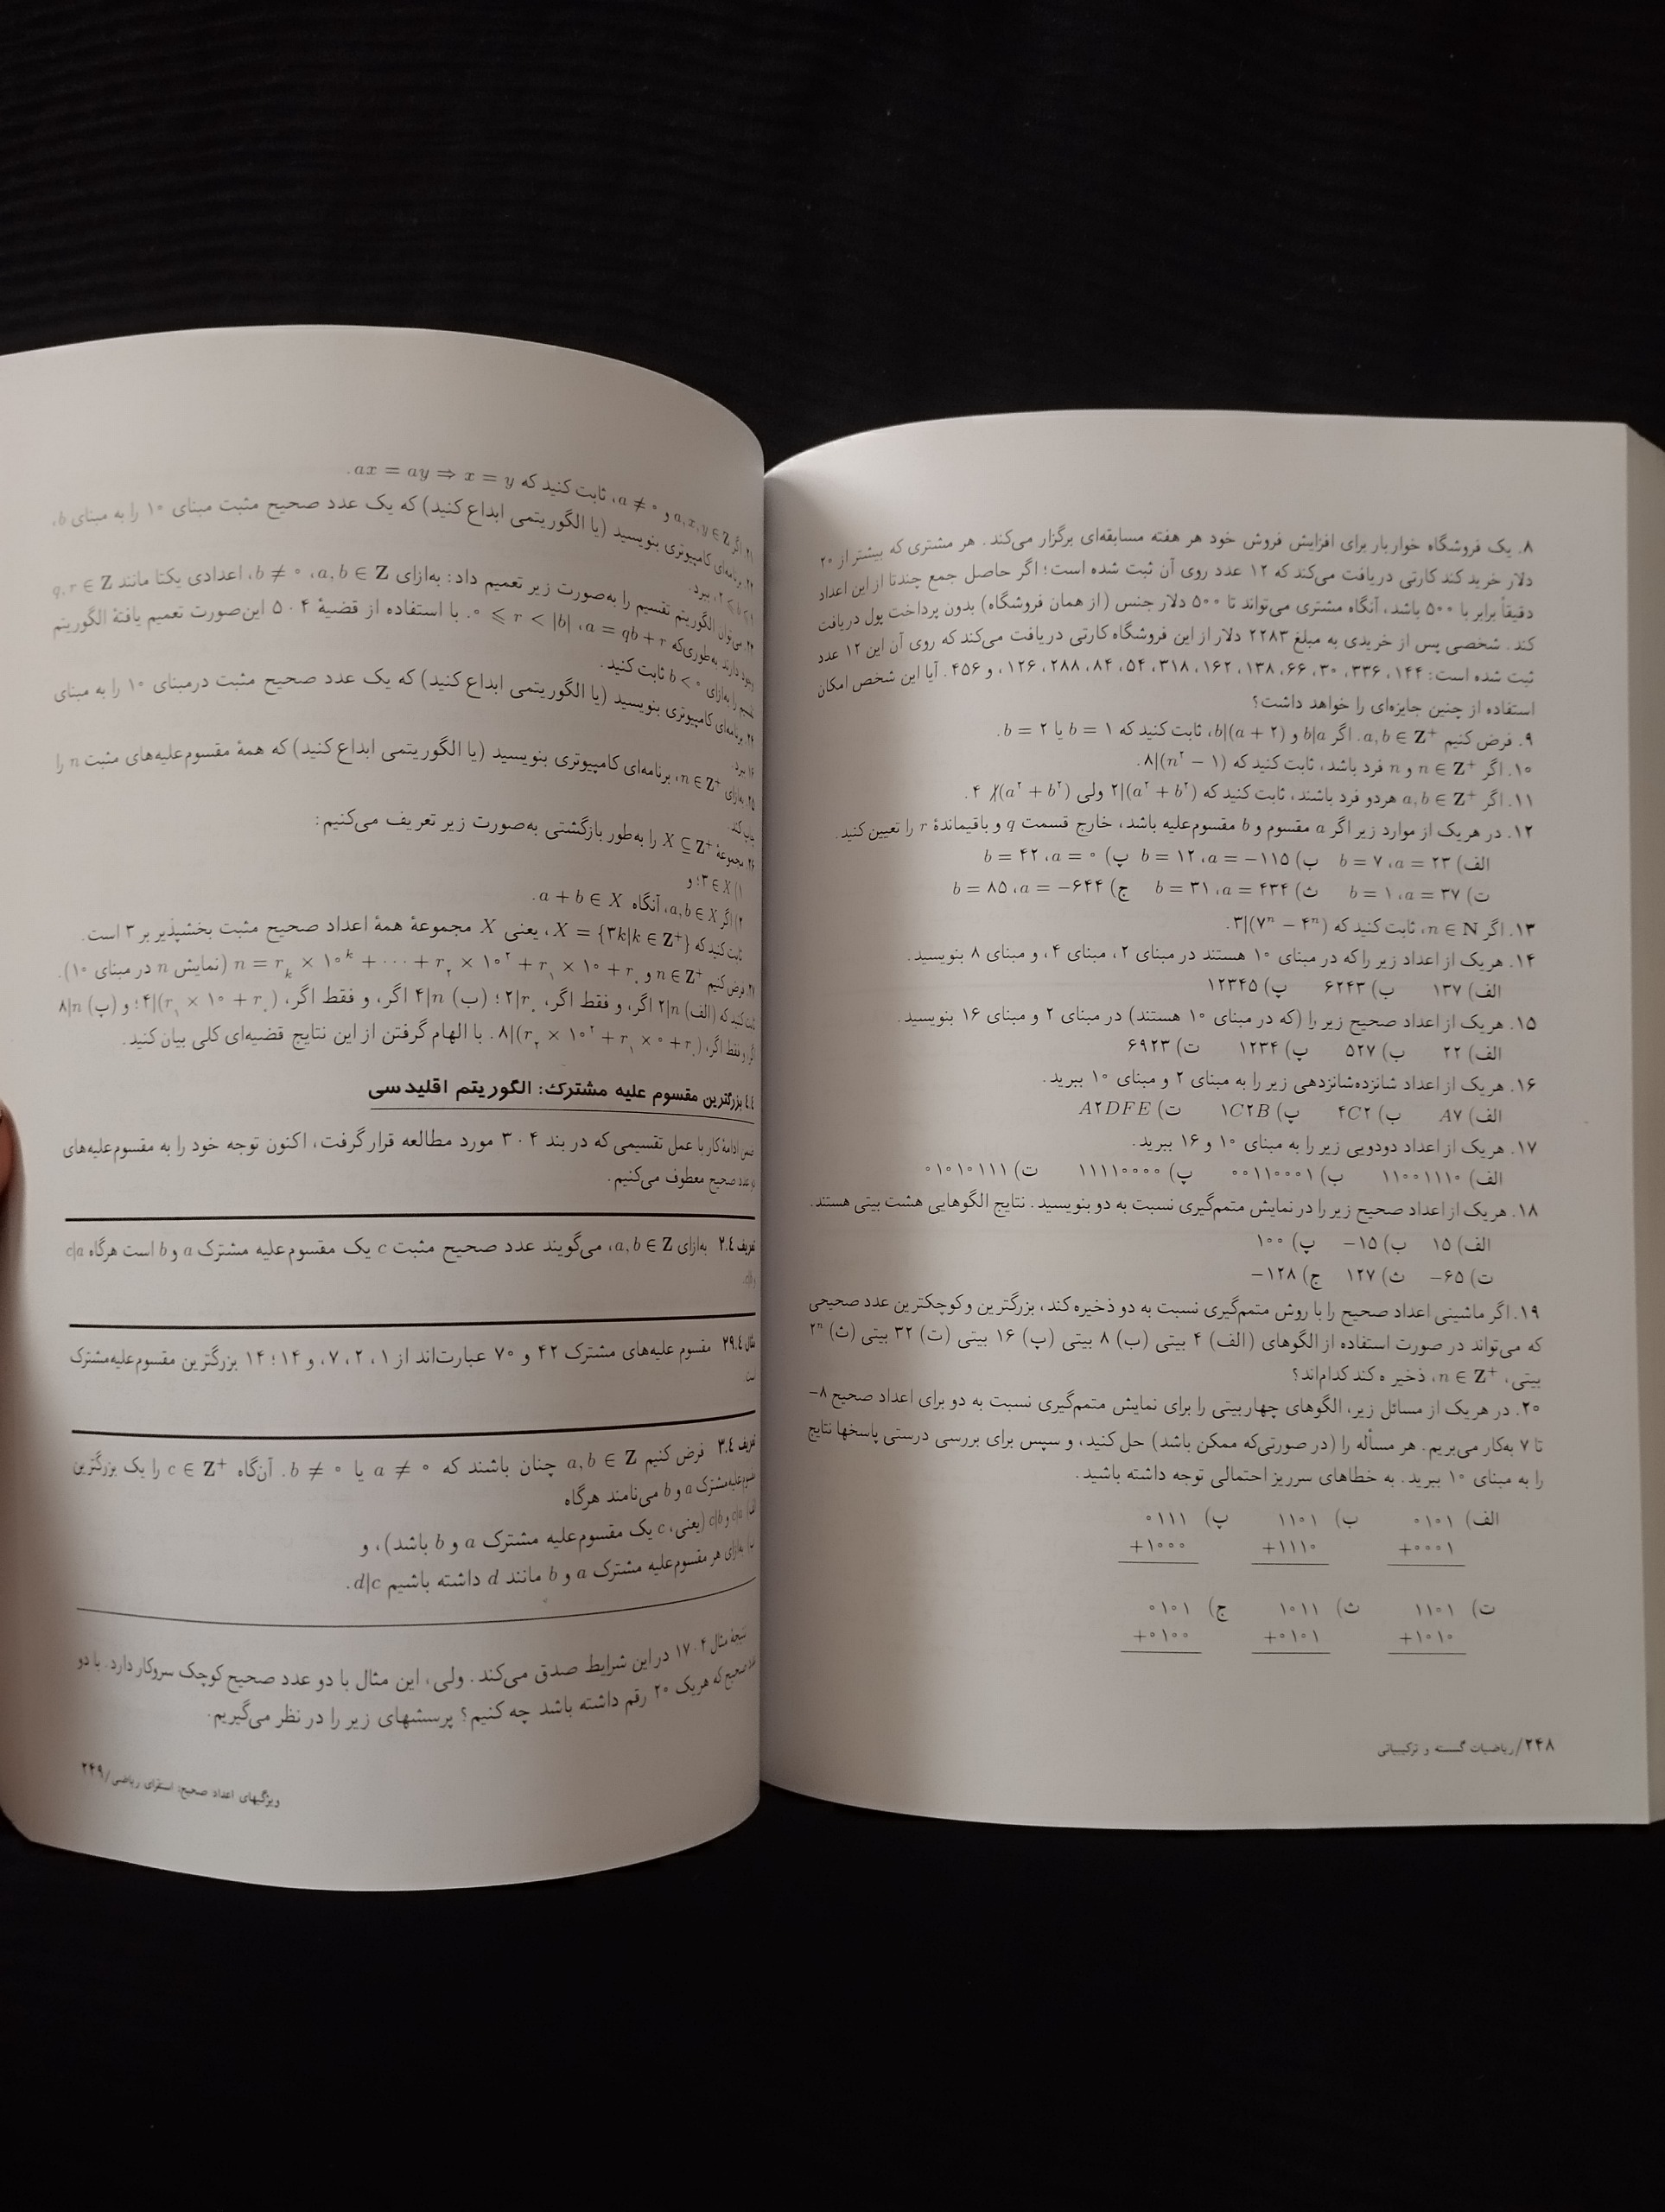 ۸. یک فروشگاه خواربار برای افزایش فروش خود هر هفته مسابقه‌ای برگزار می‌کند. هر مشتری که بیشتر از ۲۰
دلار خرید کند کارتی دریافت می‌کند که ۱۲ عدد روی آن ثبت شده است؛ اگر حاصل جمع چندتا از این اعداد
دقیقاً برابر با ۵۰۰ باشد، آنگاه مشتری می‌تواند تا ۵۰۰ دلار جنس (از همان فروشگاه) بدون پرداخت پول دریافت
کند. شخصی پس از خریدی به مبلغ ۲۲٫۸۳ دلار از این فروشگاه کارتی دریافت می‌کند که روی آن این ۱۲ عدد
ثبت شده است: ۱۴۴، ۳۳۶، ۳۰، ۶۶، ۱۳۸، ۱۶۲، ۳۱۸، ۵۴، ۸۴، ۲۸۸، ۱۲۶، و ۴۵۶. آیا این شخص امکان
استفاده از چنین جایزه‌ای را خواهد داشت؟
۹. فرض کنیم a, b ∈ Z⁺. اگر b|a و b|(a + ۲)، ثابت کنید که b = ۱ یا b = ۲.
۱۰. اگر n ∈ Z⁺ و n فرد باشد، ثابت کنید که ۸|(n² − ۱).
۱۱. اگر a, b ∈ Z⁺ هردو فرد باشند، ثابت کنید که ۲|(a² + b²) ولی ۴ ∤ (a² + b²).
۱۲. در هریک از موارد زیر اگر a مقسوم و b مقسوم‌علیه باشد، خارج قسمت q و باقیماندهٔ r را تعیین کنید.
الف) a = ۲۳، b = ۷ ب) a = −۱۱۵، b = ۱۲ پ) a = ۰، b = ۴۲
ت) a = ۳۷، b = ۱ ث) a = ۴۳۴، b = ۳۱ ج) a = −۶۴۴، b = ۸۵
۱۳. اگر n ∈ N، ثابت کنید که ۳|(۷ⁿ − ۴ⁿ).
۱۴. هریک از اعداد زیر را که در مبنای ۱۰ هستند در مبنای ۲، مبنای ۴، و مبنای ۸ بنویسید.
الف) ۱۳۷ ب) ۶۲۴۳ پ) ۱۲۳۴۵
۱۵. هریک از اعداد صحیح زیر را (که در مبنای ۱۰ هستند) در مبنای ۲ و مبنای ۱۶ بنویسید.
الف) ۲۲ ب) ۵۲۷ پ) ۱۲۳۴ ت) ۶۹۲۳
۱۶. هریک از اعداد شانزده‌شانزدهی زیر را به مبنای ۲ و مبنای ۱۰ ببرید.
الف) A۷ ب) ۴C۲ پ) ۱C۲B ت) A۲DFE
۱۷. هریک از اعداد دودویی زیر را به مبنای ۱۰ و ۱۶ ببرید.
الف) ۱۱۰۰۱۱۱۰ ب) ۰۰۱۱۰۰۰۱ پ) ۱۱۱۱۰۰۰۰ ت) ۰۱۰۱۰۱۱۱
۱۸. هریک از اعداد صحیح زیر را در نمایش متمم‌گیری نسبت به دو بنویسید. نتایج الگوهایی هشت بیتی هستند.
الف) ۱۵ ب) ۱۵− پ) ۱۰۰
ت) ۶۵− ث) ۱۲۷ ج) ۱۲۸−
۱۹. اگر ماشینی اعداد صحیح را با روش متمم‌گیری نسبت به دو ذخیره کند، بزرگترین و کوچکترین عدد صحیحی
که می‌تواند در صورت استفاده از الگوهای (الف) ۴ بیتی (ب) ۸ بیتی (پ) ۱۶ بیتی (ت) ۳۲ بیتی (ث) ۲ⁿ
بیتی، n ∈ Z⁺، ذخیر ه کند کدام‌اند؟
۲۰. در هریک از مسائل زیر، الگوهای چهاربیتی را برای نمایش متمم‌گیری نسبت به دو برای اعداد صحیح ۸−
تا ۷ به‌کار می‌بریم. هر مسأله را (در صورتی‌که ممکن باشد) حل کنید، و سپس برای بررسی درستی پاسخها نتایج
را به مبنای ۱۰ ببرید. به خطاهای سرریز احتمالی توجه داشته باشید.
الف) ۰۱۰۱ ب) ۱۱۰۱ پ) ۰۱۱۱
+۰۰۰۱ +۱۱۱۰ +۱۰۰۰
ت) ۱۱۰۱ ث) ۱۰۱۱ ج) ۰۱۰۱
+۱۰۱۰ +۰۱۰۱ +۰۱۰۰
۲۴۸/ریاضیات گسسته و ترکیبیاتی
۲۱. اگر a, x, y ∈ Z و a ≠ ۰، ثابت کنید که ax = ay ⇒ x = y.
۲۲. برنامه‌ای کامپیوتری بنویسید (یا الگوریتمی ابداع کنید) که یک عدد صحیح مثبت مبنای ۱۰ را به مبنای b،
ببرد.
۲۳. می‌توان الگوریتم تقسیم را به‌صورت زیر تعمیم داد: به‌ازای a, b ∈ Z، b ≠ ۰، اعدادی یکتا مانند q, r ∈ Z
وجود دارند به‌طوری‌که a = qb + r، ۰ ⩽ r < |b|. با استفاده از قضیهٔ ۵.۴ این‌صورت تعمیم یافتهٔ الگوریتم
تقسیم را به‌ازای b < ۰ ثابت کنید.
۲۴. برنامه‌ای کامپیوتری بنویسید (یا الگوریتمی ابداع کنید) که یک عدد صحیح مثبت درمبنای ۱۰ را به مبنای
۱۶ ببرد.
۲۵. به‌ازای n ∈ Z⁺، برنامه‌ای کامپیوتری بنویسید (یا الگوریتمی ابداع کنید) که همهٔ مقسوم‌علیه‌های مثبت n را
چاپ کند.
۲۶. مجموعهٔ X ⊆ Z⁺ را به‌طور بازگشتی به‌صورت زیر تعریف می‌کنیم:
۱) ۳ ∈ X؛ و
۲) اگر a, b ∈ X، آنگاه a + b ∈ X.
ثابت کنید که X = {۳k|k ∈ Z⁺}، یعنی X مجموعهٔ همهٔ اعداد صحیح مثبت بخشپذیر بر ۳ است.
۲۷. فرض کنیم n ∈ Z⁺ و n = rₖ × ۱۰ᵏ + ⋯ + r₂ × ۱۰² + r₁ × ۱۰ + r₀ (نمایش n در مبنای ۱۰).
ثابت کنید که (الف) ۲|n اگر، و فقط اگر، ۲|r₀؛ (ب) ۴|n اگر، و فقط اگر، ۴|(r₁ × ۱۰ + r₀)؛ و (پ) ۸|n
اگر، و فقط اگر، ۸|(r₂ × ۱۰² + r₁ × ۰ + r₀). با الهام گرفتن از این نتایج قضیه‌ای کلی بیان کنید.
۴.۴ بزرگترین مقسوم علیه مشترک: الگوریتم اقلیدسی
ضمن ادامهٔ کار با عمل تقسیمی که در بند ۳.۴ مورد مطالعه قرار گرفت، اکنون توجه خود را به مقسوم‌علیه‌های
دو عدد صحیح معطوف می‌کنیم.
تعریف ۲.۴ به‌ازای a, b ∈ Z، می‌گویند عدد صحیح مثبت c یک مقسوم‌علیه مشترک a و b است هرگاه c|a
و c|b.
مثال ۲۹.۴ مقسوم علیه‌های مشترک ۴۲ و ۷۰ عبارت‌اند از ۱، ۲، ۷، و ۱۴؛ ۱۴ بزرگترین مقسوم‌علیه‌مشترک
است.
تعریف ۳.۴ فرض کنیم a, b ∈ Z چنان باشند که a ≠ ۰ یا b ≠ ۰. آن‌گاه c ∈ Z⁺ را یک بزرگترین
مقسوم‌علیه‌مشترک a و b می‌نامند هرگاه
الف) c|a و c|b (یعنی، c یک مقسوم‌علیه مشترک a و b باشد)، و
ب) به‌ازای هر مقسوم‌علیه مشترک a و b مانند d داشته باشیم d|c.
نتیجهٔ مثال ۱۷.۴ در این شرایط صدق می‌کند. ولی، این مثال با دو عدد صحیح کوچک سروکار دارد. با دو
عدد صحیح که هریک ۲۰ رقم داشته باشد چه کنیم؟ پرسشهای زیر را در نظر می‌گیریم.
ویژگیهای اعداد صحیح: استقرای ریاضی/۲۴۹